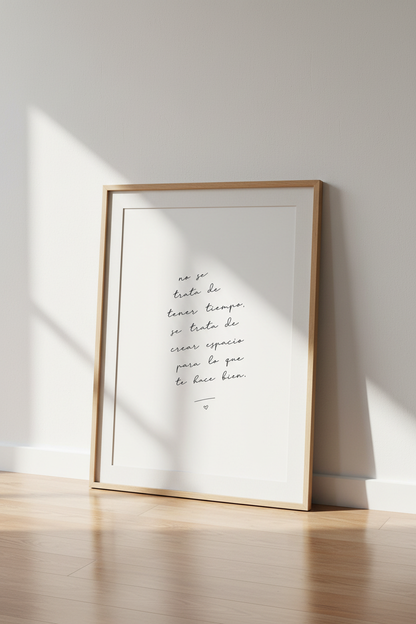 no se
trata de
tener tiempo,
se trata de
crear espacio
para lo que
te hace bien.